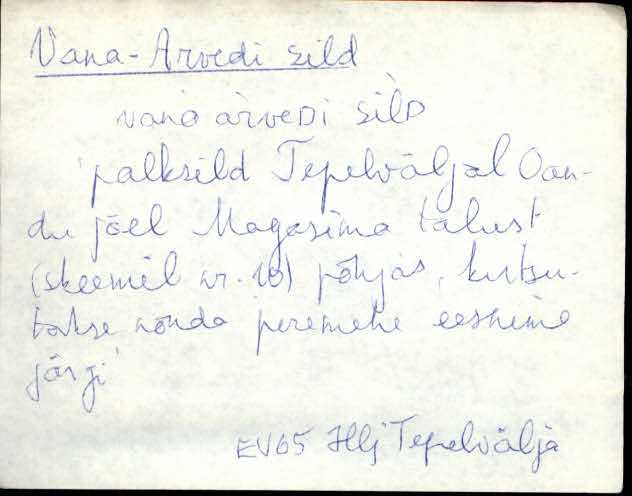 Vana-Arvedi sild
vana àrveDi sìlD
'palksild Tepelväljal Oan-
du jõel Magasima talust
(skeemil nr. 10) põhjas, kutsu-
takse nõnda peremehe eesnime
järgi'
EV65 Hlj Tepelvälja